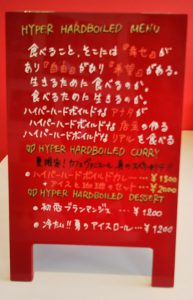 HYPER HARDBOILED MENU
食べること、そこには "幸せ" が
あり "自由" があり "希望" がある。
生きるため食べるのか、
食べるため生きるのか。
ハイパーハードボイルドな アナタが
ハイパーハードボイルドな 店主の作る
ハイパーハードボイルドな リアルを食べる
HYPER HARDBOILED CURRY
・ハイパーハードボイルドカレー…¥1500
・アイスと珈琲のセット…¥2000
HYPER HARDBOILED DESSERT
・初恋ブランマンジェ …¥1200
・冷たい!! 男のアイスロール…¥1200